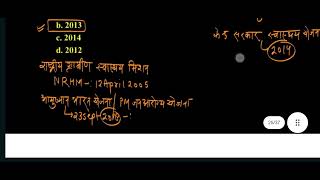 b. 2013
c. 2014
d. 2012
राष्ट्रीय ग्रामीण स्वास्थ्य मिशन
NRHM -: 12 April 2005
आयुष्मान भारत योजना / PM जन आरोग्य योजना
→ 23 Sept 2018 -:
केन्द्र सरकार स्वास्थ्य योजना
→ 2014
26/37